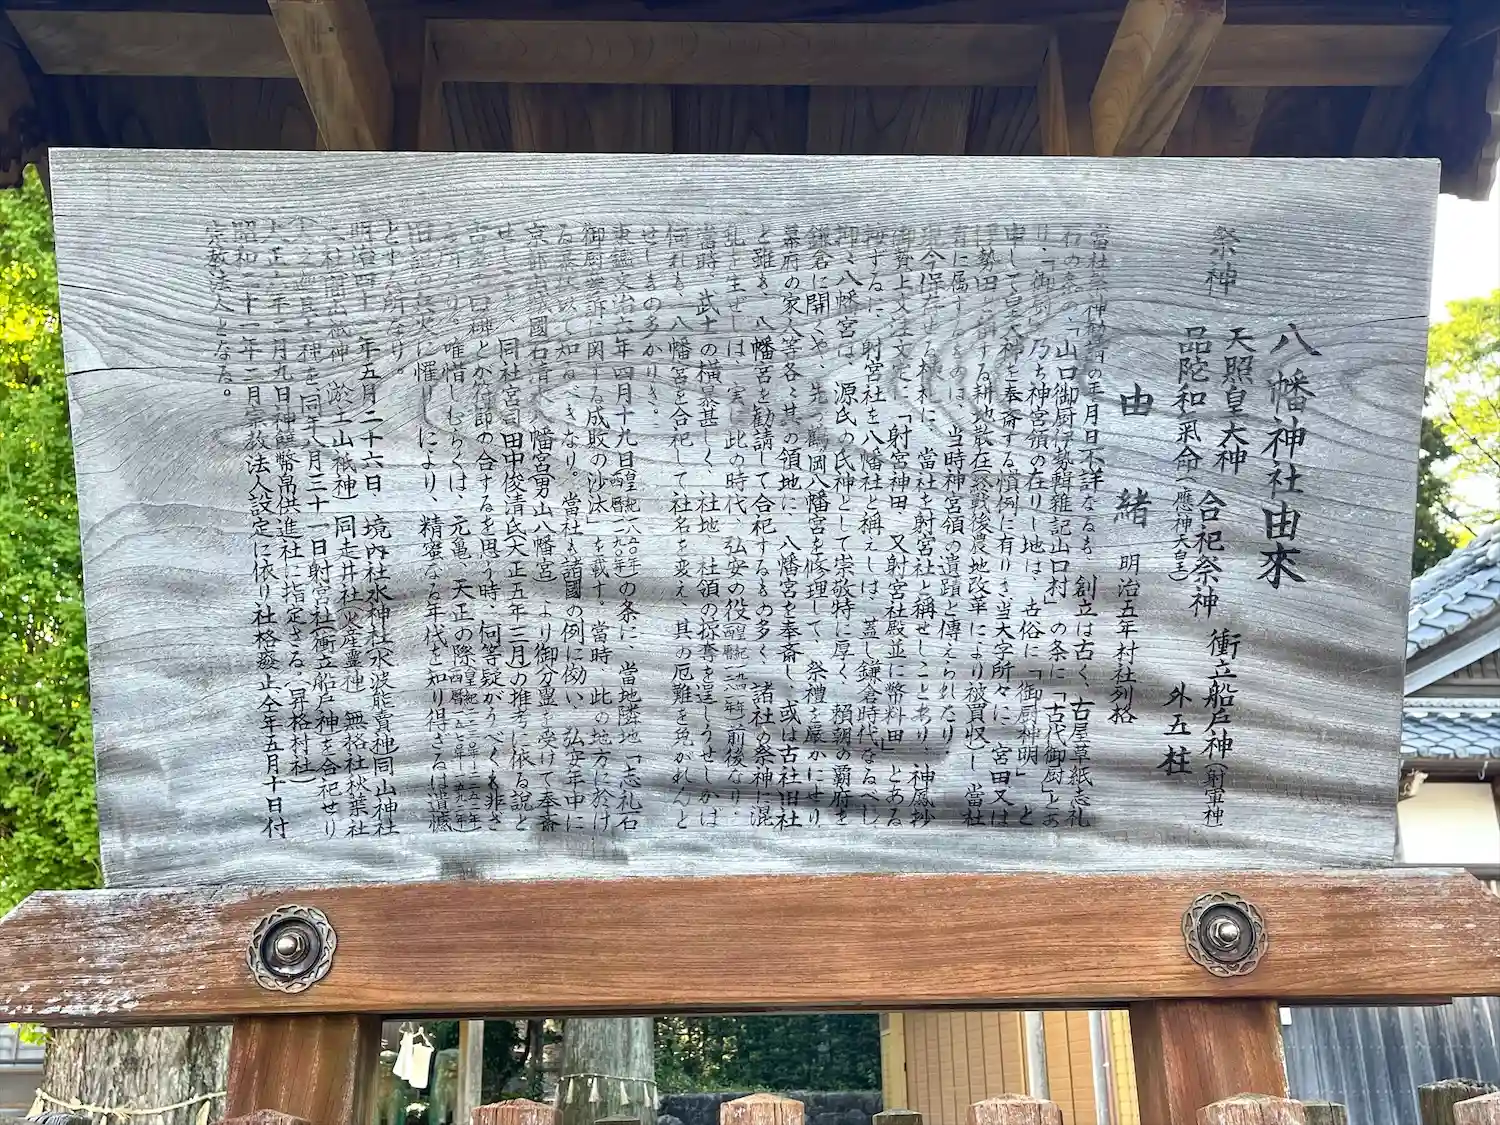 八幡神社由来
祭神
天照皇大神
品陀和氣命(應神天皇)
合祀祭神
衝立船戸神(射軍神)
外五柱
由緒
明治五年村社列格
当社祭神勧請の年月日不詳なるも 創立は古く、古屋草紙志礼
石の条の、「山口御厨伊勢輯雜記山口村」の条に「古代御厨」とあ
り、「御厨」乃ち神宮領の在りし地は、古俗に「御厨神明」と
申して皇大神を奉斎する慣例に有りき当大字所々に、宮田又は
伊勢田と稱する耕地散在終戦後農地改革により被買収し、當社
有に属するものは、当時神宮領の遺蹟と傳えられたり、
現今保存せる棟札に、當社を射宮社と稱せしことあり、神鳳抄
に「射宮神田、又射宮社殿並に幣料田」とある
に射宮社を八幡社と稱えしは、蓋し鎌倉時代なるべし、
抑々八幡宮は、源氏の氏神として崇敬特に厚く、頼朝の覇府を
鎌倉に開くや、先づ鶴岡八幡宮を修理して、祭禮を厳かにせり、
幕府の家人等各々其の領地に、八幡宮を奉斎し、或は古社旧社
と雖も、八幡宮を勧請して合祀するもの多く、諸社の祭神に混
乱を生ぜしは、実に此の時代、弘安の役前後なり、
當時、武士の横暴甚しく、社地、社領の掠奪を逞しうせしかば
何れも、八幡宮を合祀して社名を変え、其の厄難を免がれんと
せしもの多かりき。
東鑑文治六年四月十九日(皇紀一八五〇年 西暦一一九〇年)の条に、當地隣地「志礼石
御厨濫訴に関する成敗の沙汰」を載す。當時、此の地方に於け
る暴状以て知るべきなり。當社も諸國の例に傚い、弘安年中に
京都山城國石清水八幡宮(男山八幡宮)より御分霊を受けて奉斎
せしと、同社宮司田中俊清氏(大正五年三月)の推考に依る説と
古老の口碑とが符節の合するを思う時、何等疑がうべくも非ざ
るなり。唯惜しむらくは、元亀、天正の際
旧記の兵火に罹りしにより、精蜜なる年代を知り得ざるは遺憾
とする所なり。
明治四十年五月二十六日 境内社水神社(水波能賣神)同山神社
無格社秋葉社
(大山祇神)同走井社(火産霊神)
射宮社(衝立船戸神)を合祀せり
大正 年二月九日神饌幣帛供進社に指定さる。(昇格村社)
昭和二十一年二月宗教法人設定に依り社格廃止全年五月十日付
宗教法人となる。